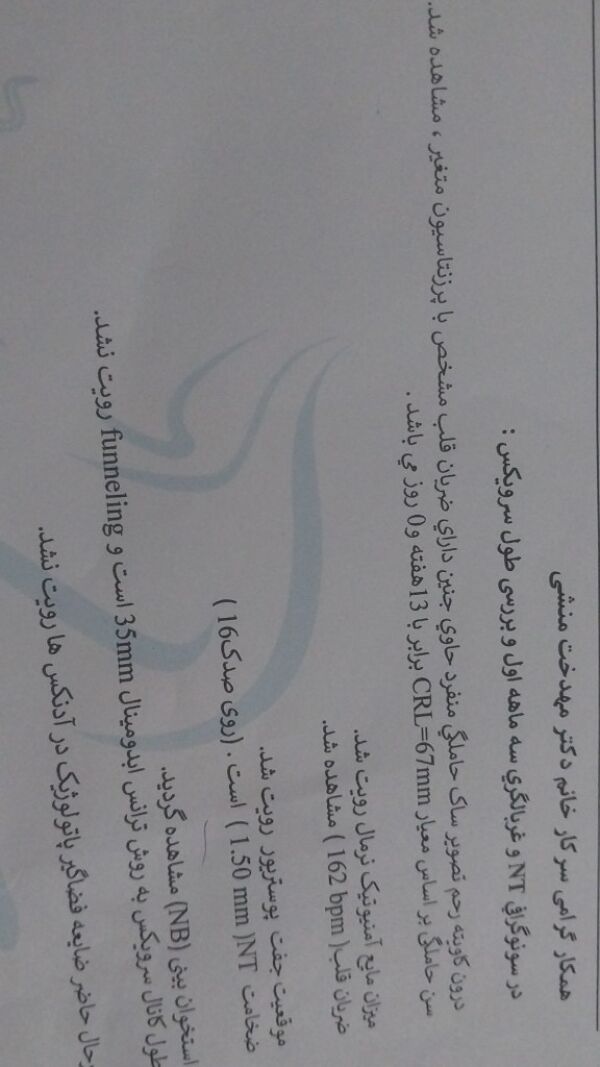 همکار گرامی سرکار خانم دکتر مهدخت منشی
در سونوگرافي NT و غربالگري سه ماهه اول و بررسی طول سرویکس :
درون کاویته رحم تصویر ساک حاملگي منفرد حاوي جنین داراي ضربان قلب مشخص با پرزنتاسیون متغیر ، مشاهده شد.
سن حاملگی بر اساس معیار CRL=67mm برابر با 13هفته و0 روز مي باشد .
میزان مایع آمنیوتیک نرمال رویت شد.
ضربان قلب( 162 bpm ) مشاهده شد.
موقعیت جفت پوستریور رویت شد.
ضخامت NT( 1.50 mm ) است . (روی صدک16 )
استخوان بینی (NB) مشاهده گردید.
طول کانال سرویکس به روش ترانس ابدومینال 35mm است و funneling رویت نشد.
حال حاضر ضایعه فضاگیر پاتولوژیک در آدنکس ها رویت نشد.